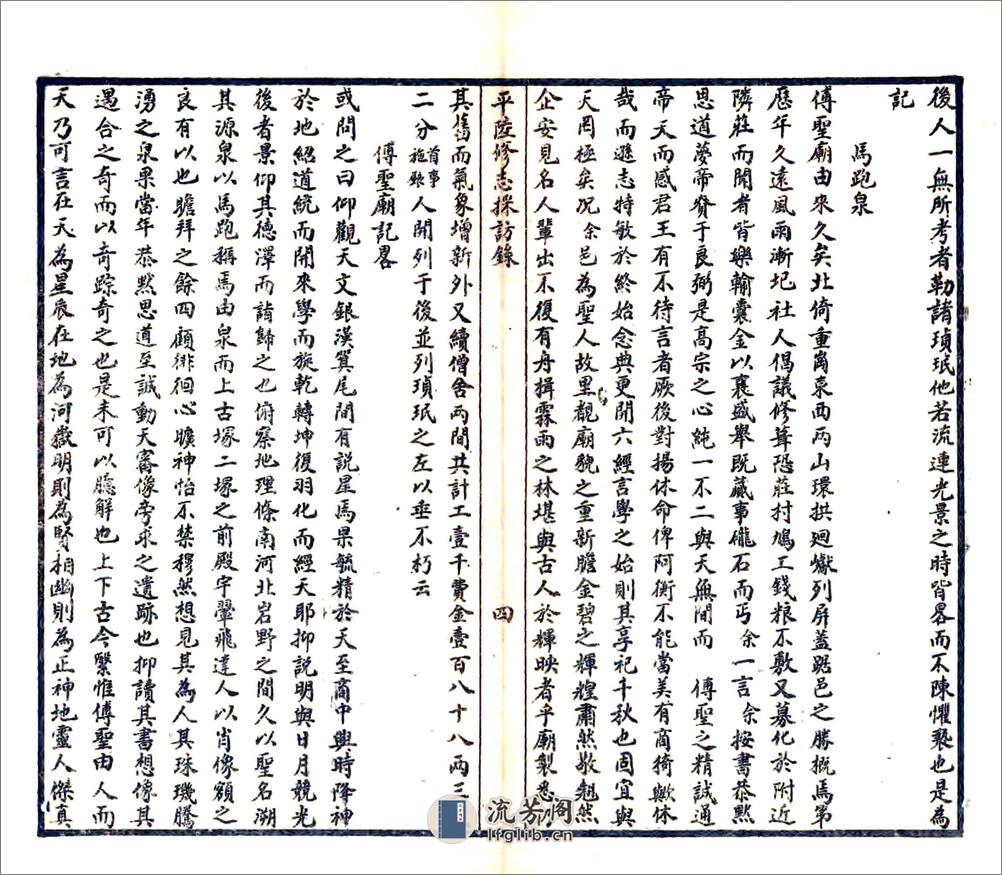 後人一無所考者勒諸瑣珉他若流連光景之時皆畧而不陳懼褻也是為
記
馬跑泉
傅聖廟由來久矣北倚重崗東西兩山環拱迴巘列屏蓋踞邑之勝概焉第
歷年久遠風雨漸圮社人倡議修葺恐莊村鳩工錢粮不敷又募化於附近
隣莊而聞者皆樂輸囊金以襄盛舉既蕆事礲石而丐余一言余按書恭黙
思道夢帝賚于良弼是高宗之心純一不二與天無間而 傅聖之精誠通
帝天而感君王有不待言者厥後對揚休命俾阿衡不能當美有商猗歟休
哉而遜志特敏於終始念典更開六經言學之始則其享祀千秋也固宜與
天罔極矣况余邑為聖人故里觀廟貌之重新瞻金碧之輝煌肅然敬翹然
企安見名人輩出不復有舟揖霖雨之林堪與古人於輝映者乎廟製悉
平陸修志採訪錄
四
其舊而氣象增新外又續僧舍两間共計工壹千費金壹百八十八兩三
二分首事施縣人開列于後並列瑣珉之左以垂不朽云
傅聖廟記畧
或問之曰仰觀天文銀漢翼尾間有說星焉果毓精於天至商中興時降神
於地紹道統而開來學而旋乾轉坤復羽化而經天耶抑説明與日月競光
後者景仰其德澤而諸歸之也俯察地理條南河北岩野之間久以聖名湖
其源泉以馬跑稱焉由泉而上古塚二塚之前殿宇翬飛達人以肖像額之
良有以也瞻拜之餘四顧徘徊心曠神怡不禁穆然想見其為人其珠璣騰
湧之泉果當年恭黙思道至誠動天審像旁求之遺跡也抑讀其書想像其
遇合之奇而以奇踪奇之也是未可以臆解也上下古今緊惟傅聖由人而
天乃可言在天為星辰在地為河嶽明則為賢相幽則為正神地靈人傑真
流芳阁
lfglib.cn